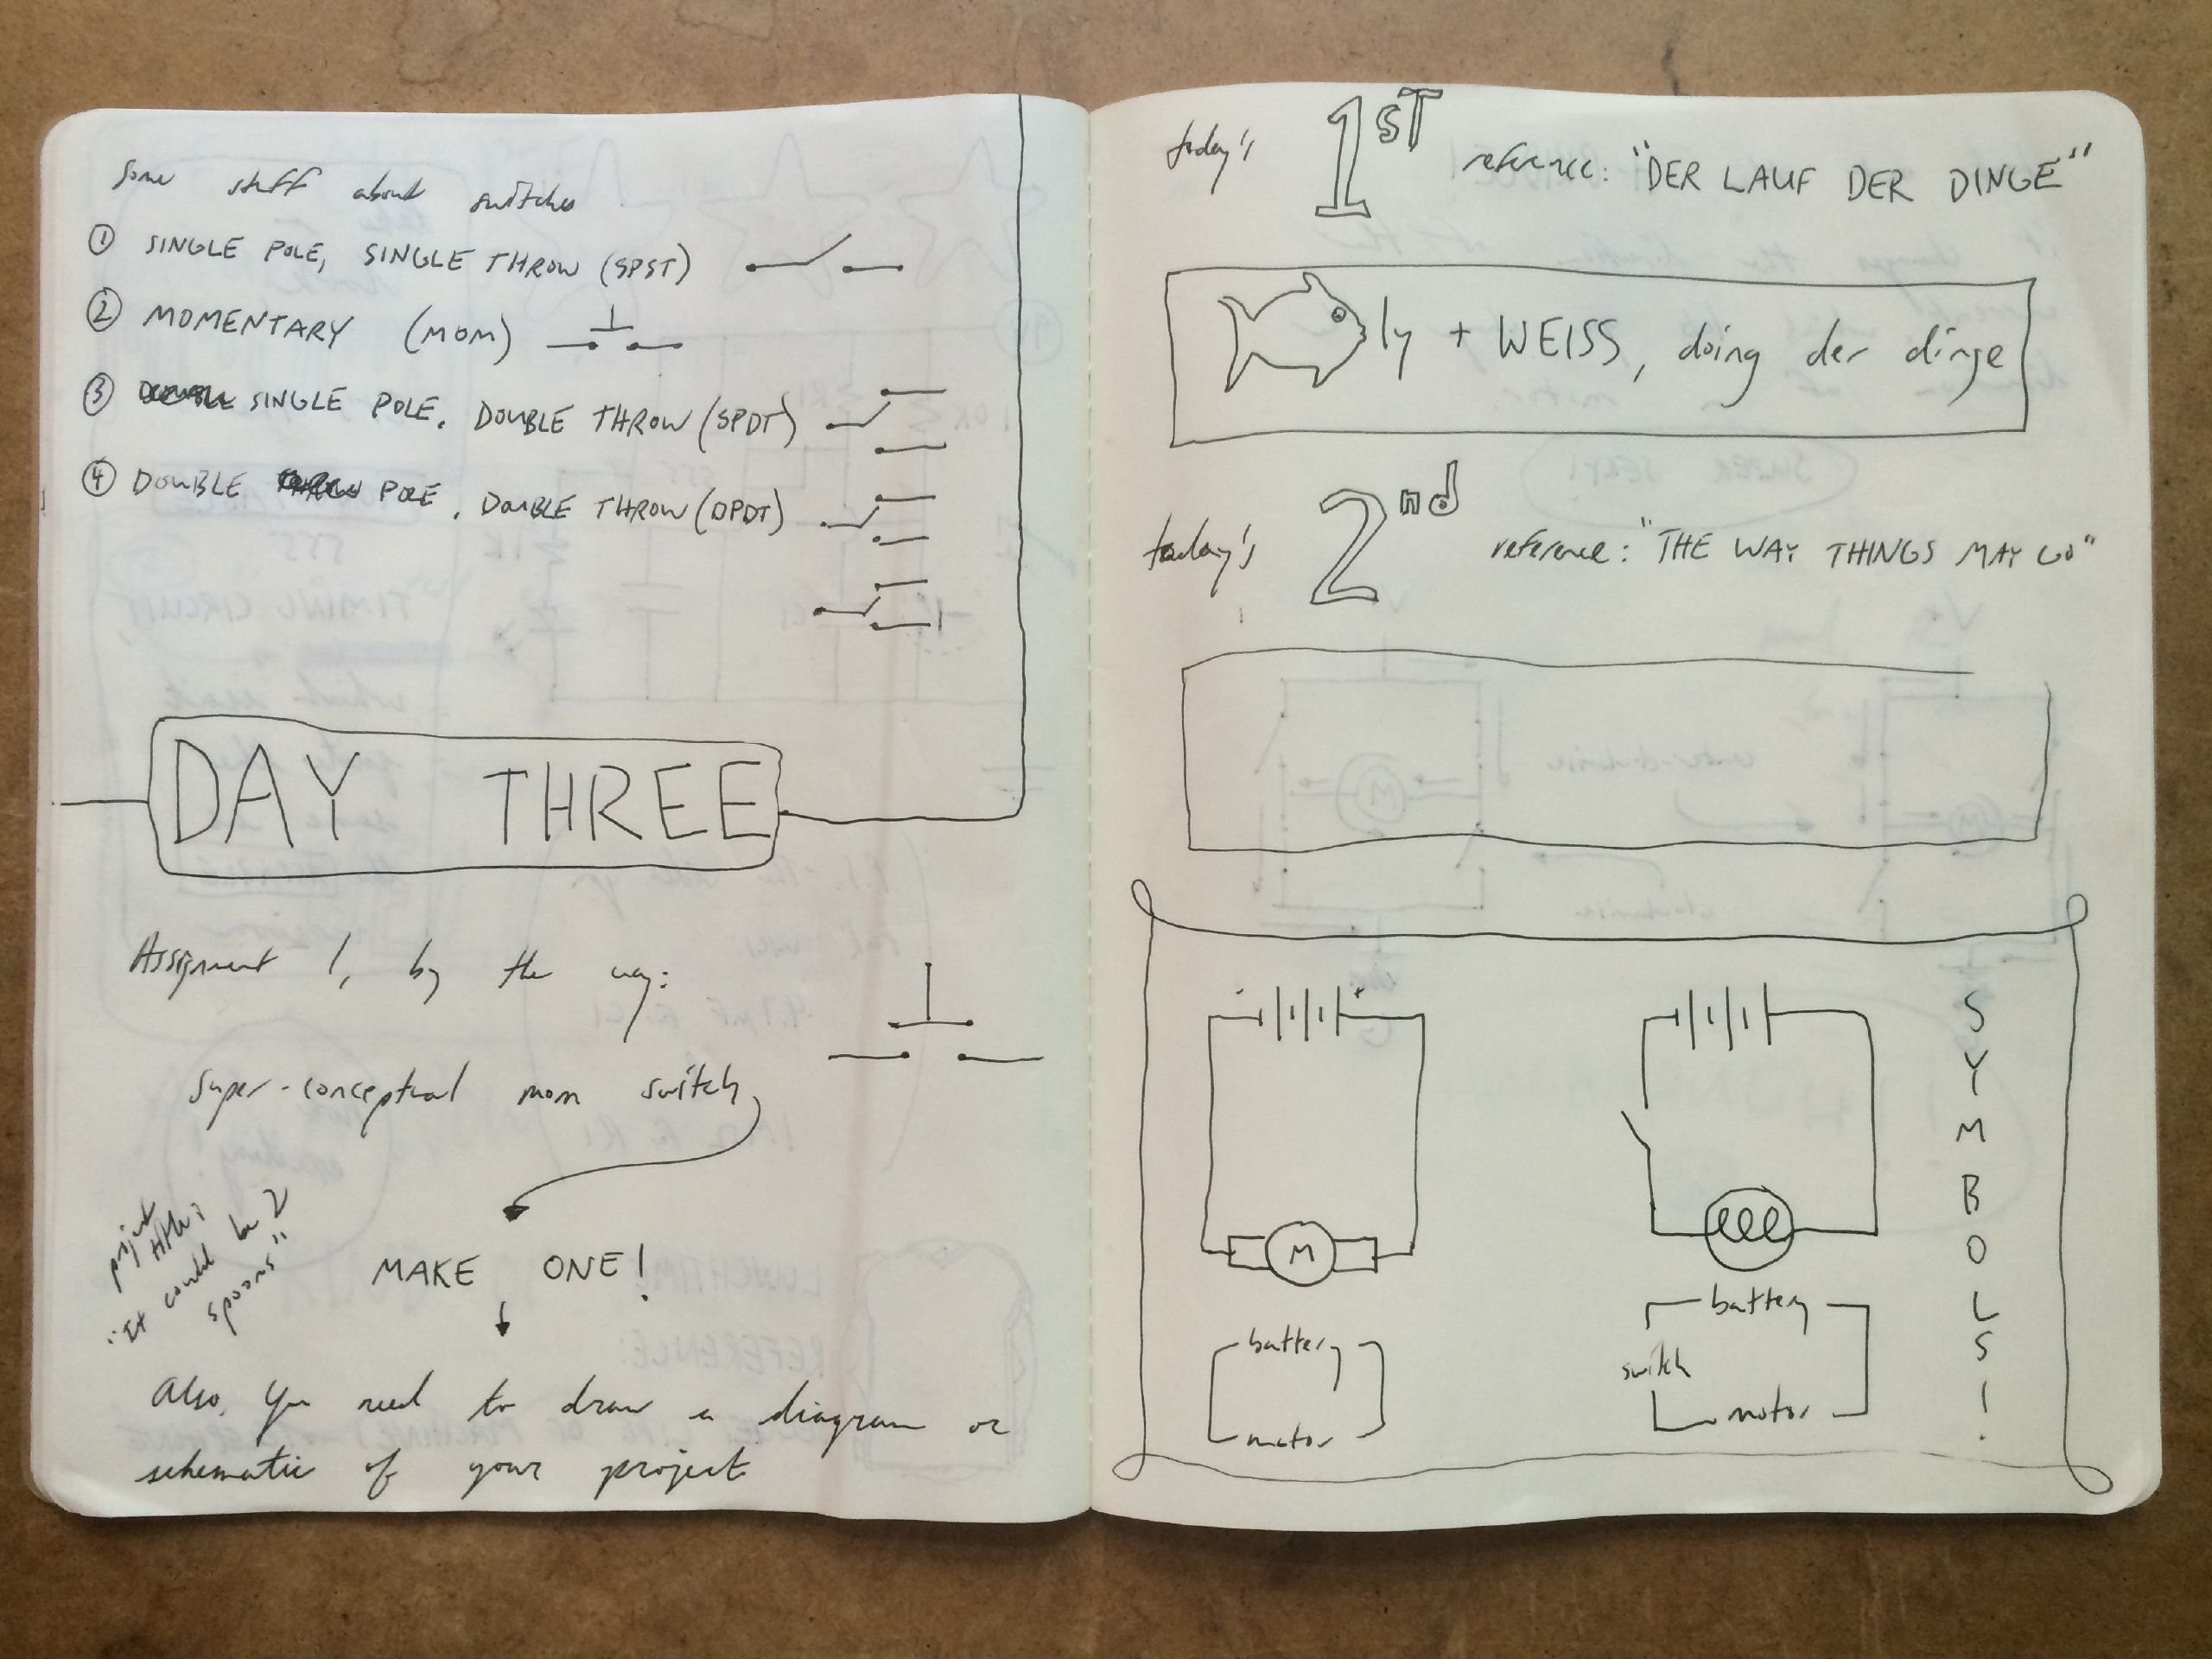 some stuff about switches
① SINGLE POLE, SINGLE THROW (SPST)
② MOMENTARY (MOM)
③ SINGLE POLE, DOUBLE THROW (SPDT)
④ DOUBLE POLE, DOUBLE THROW (DPDT)
DAY THREE
Assignment 1, by the way:
super-conceptual mom switch
MAKE ONE!
project
"It could be 2
spoons"
Also, you need to draw a diagram or
schematic of your project
today's 1ST reference: "DER LAUF DER DINGE"
ly + WEISS, doing der dinge
today's 2nd reference: "THE WAY THINGS MAY GO"
M
battery
motor
battery
switch
motor
SYMBOLS!